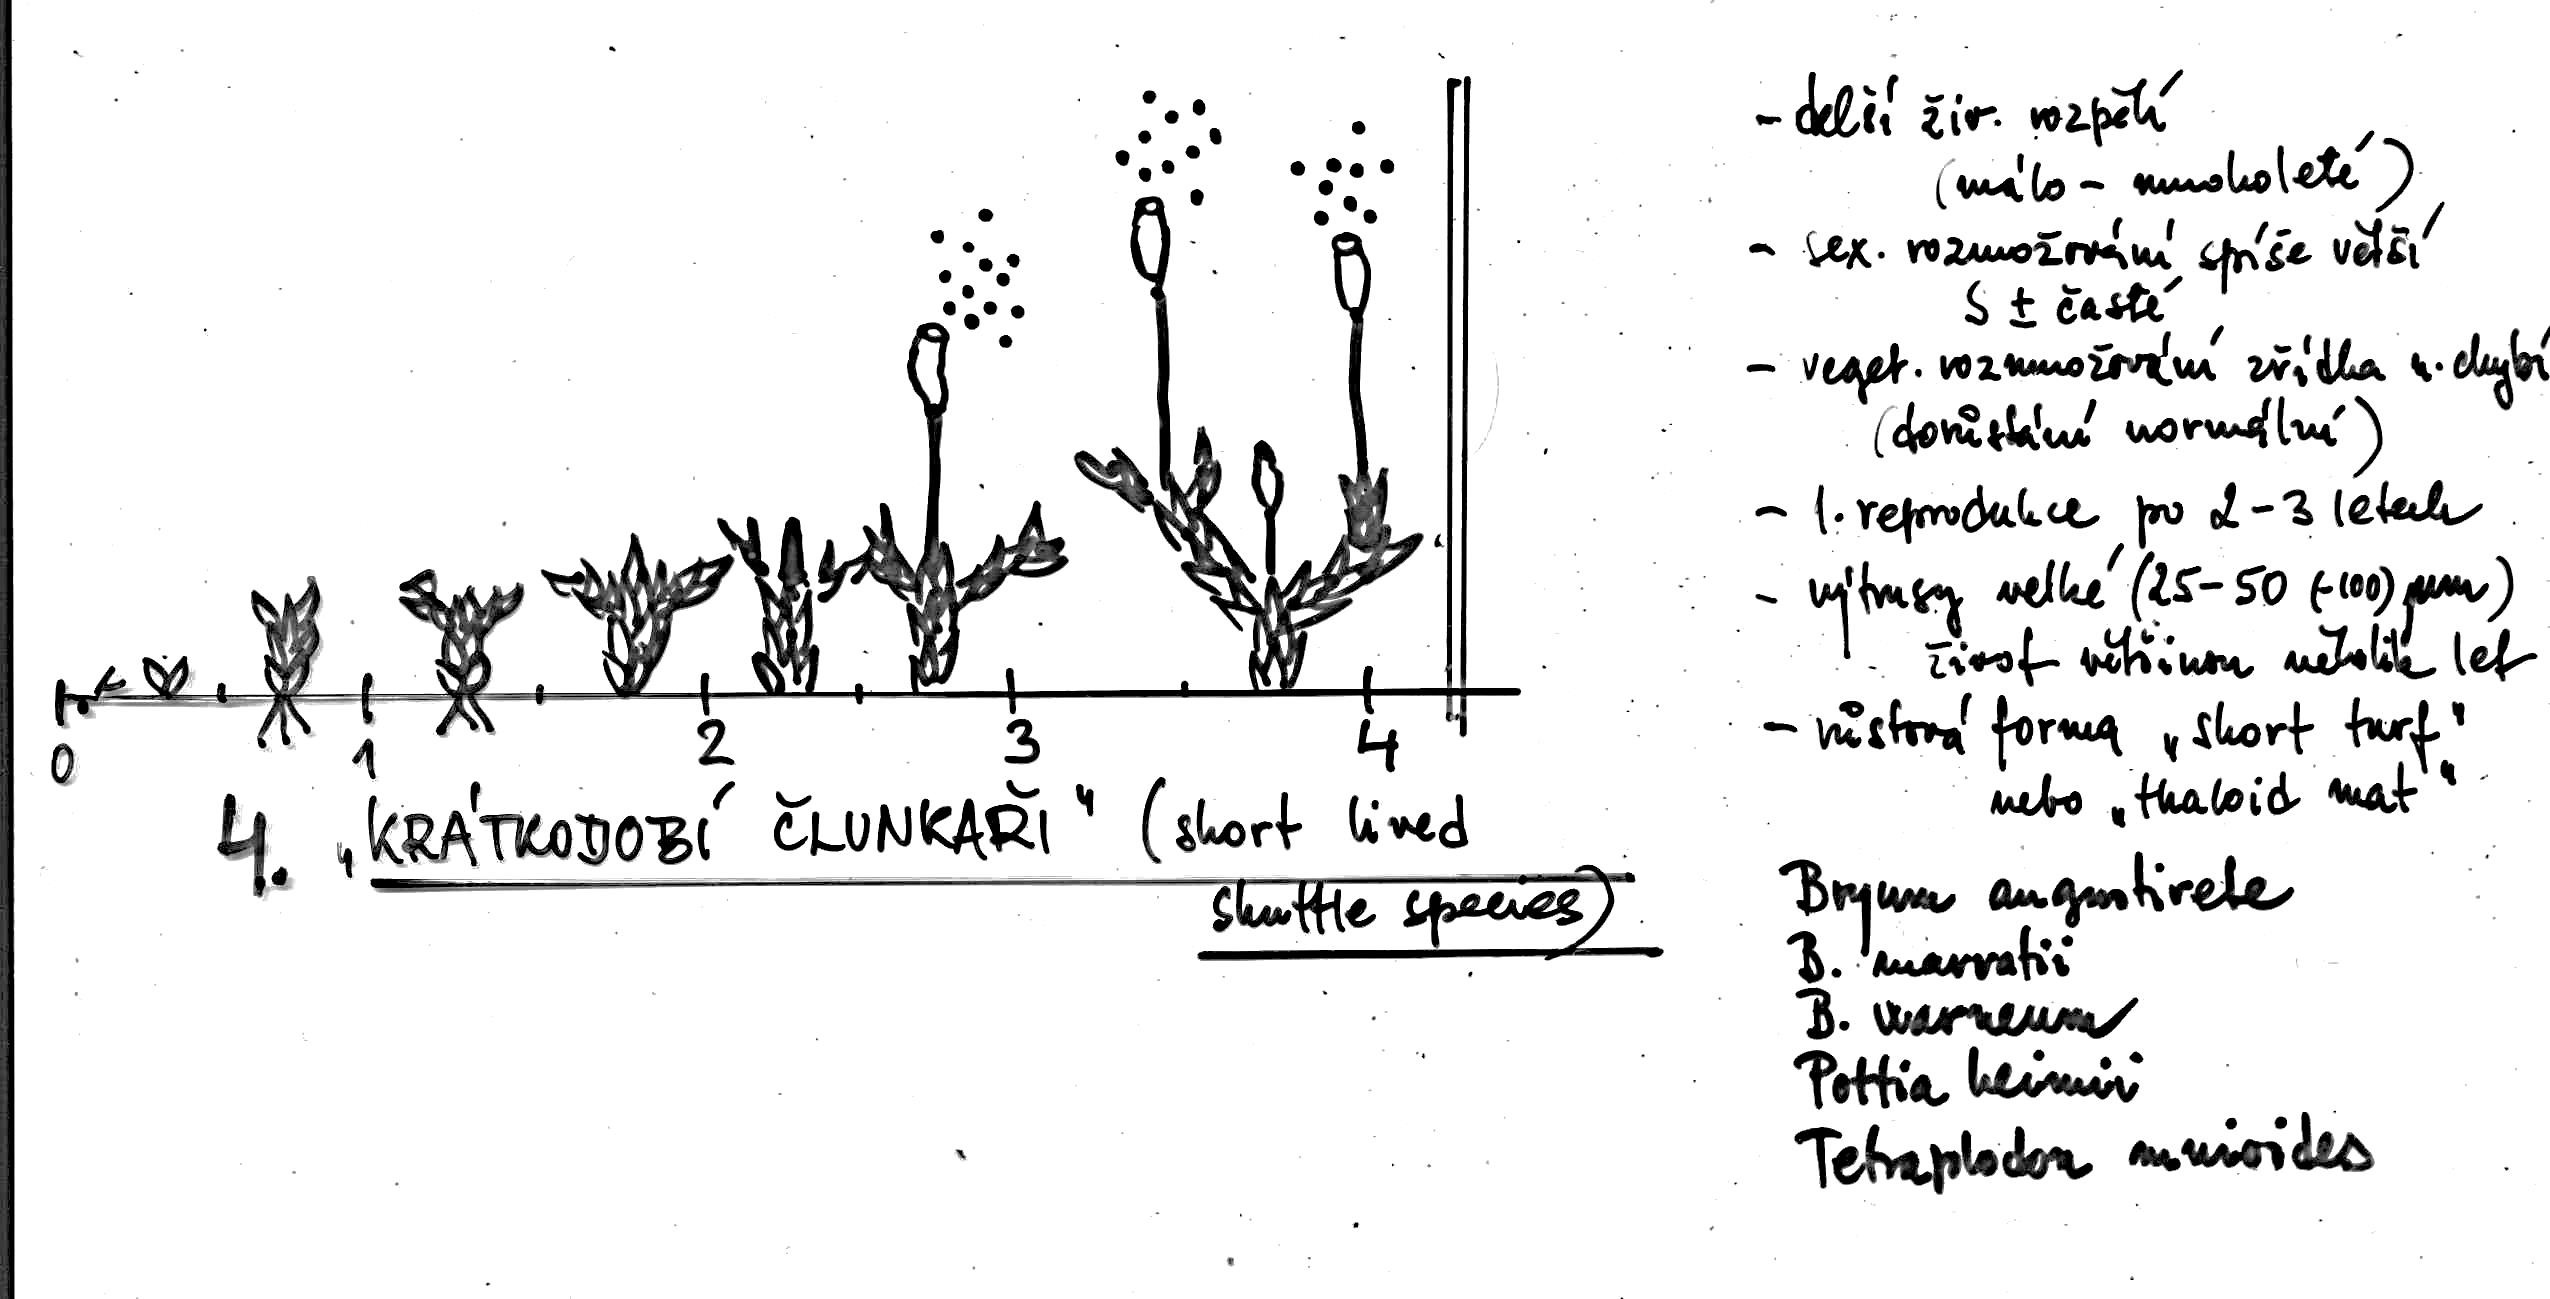 0 1 2 3 4
4. „KRÁTKODOBÍ ČLUNKAŘI" (short lived
shuttle species)
- delší živ. rozpětí
(málo - mnoholeté)
- sex. rozmnožování spíše větší
S ± časté
- veget. rozmnožování zřídka n. chybí
(dorůstání normální)
- 1. reprodukce po 2-3 letech
- výtrusy velké (25-50 (-100) µm)
život většinou několik let
- růstová forma „short turf"
nebo „thaloid mat"
Bryum angustirete
B. marratii
B. warneum
Pottia heimii
Tetraplodon mnioides